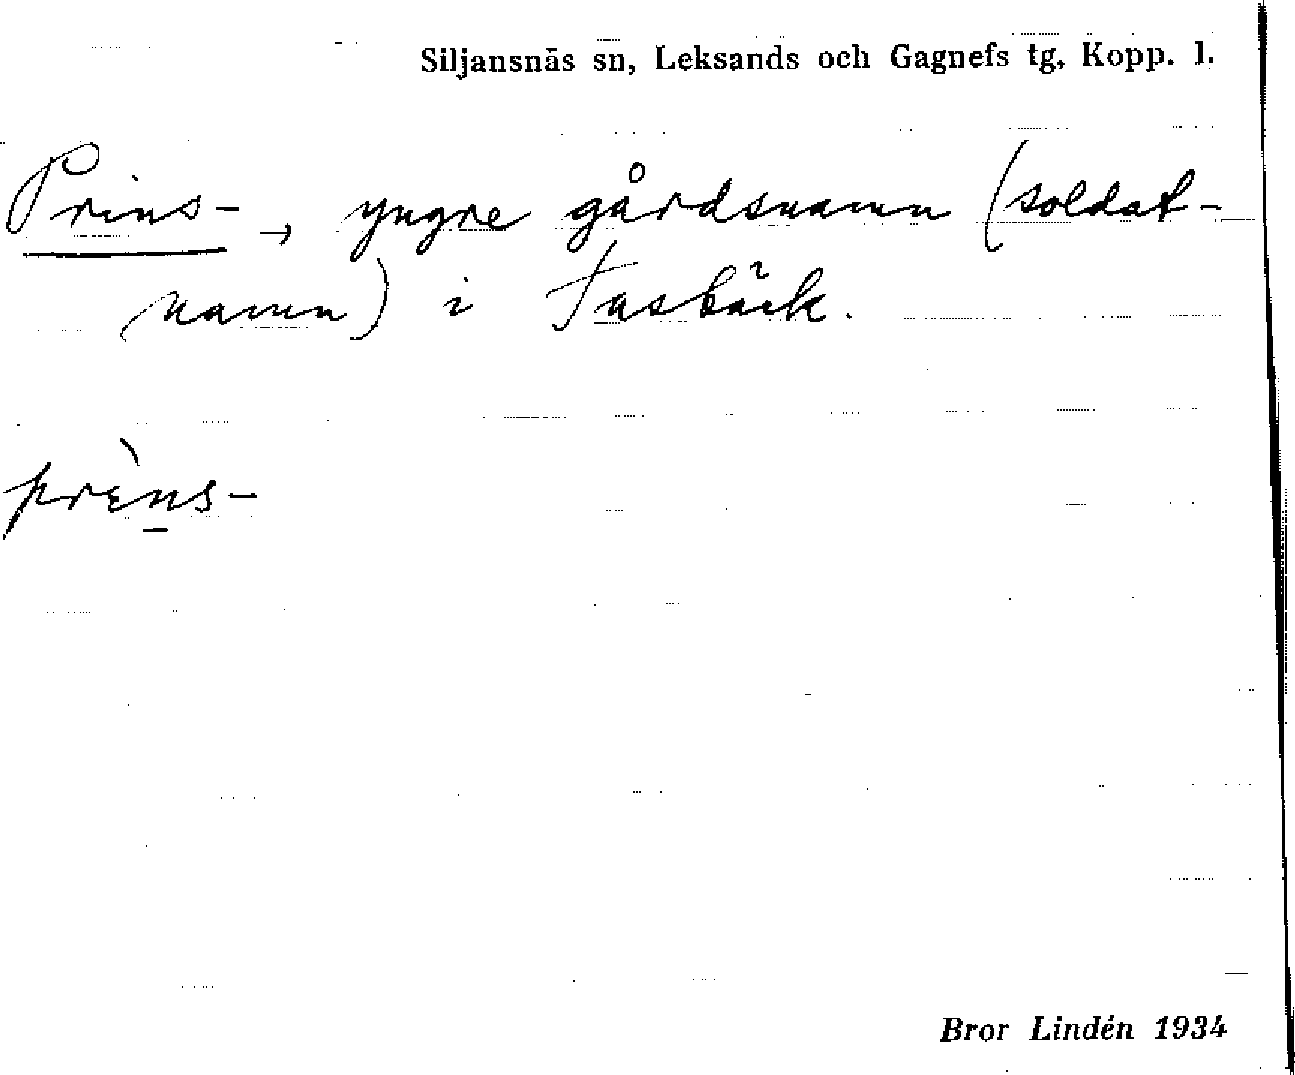 Siljansnäs sn, Leksands och Gagnefs tg. Kopp. l.
Prins-, yngre gårdsnamn (soldat-
namn) i Tasbäck.
prèns-
Bror Lindén 1934